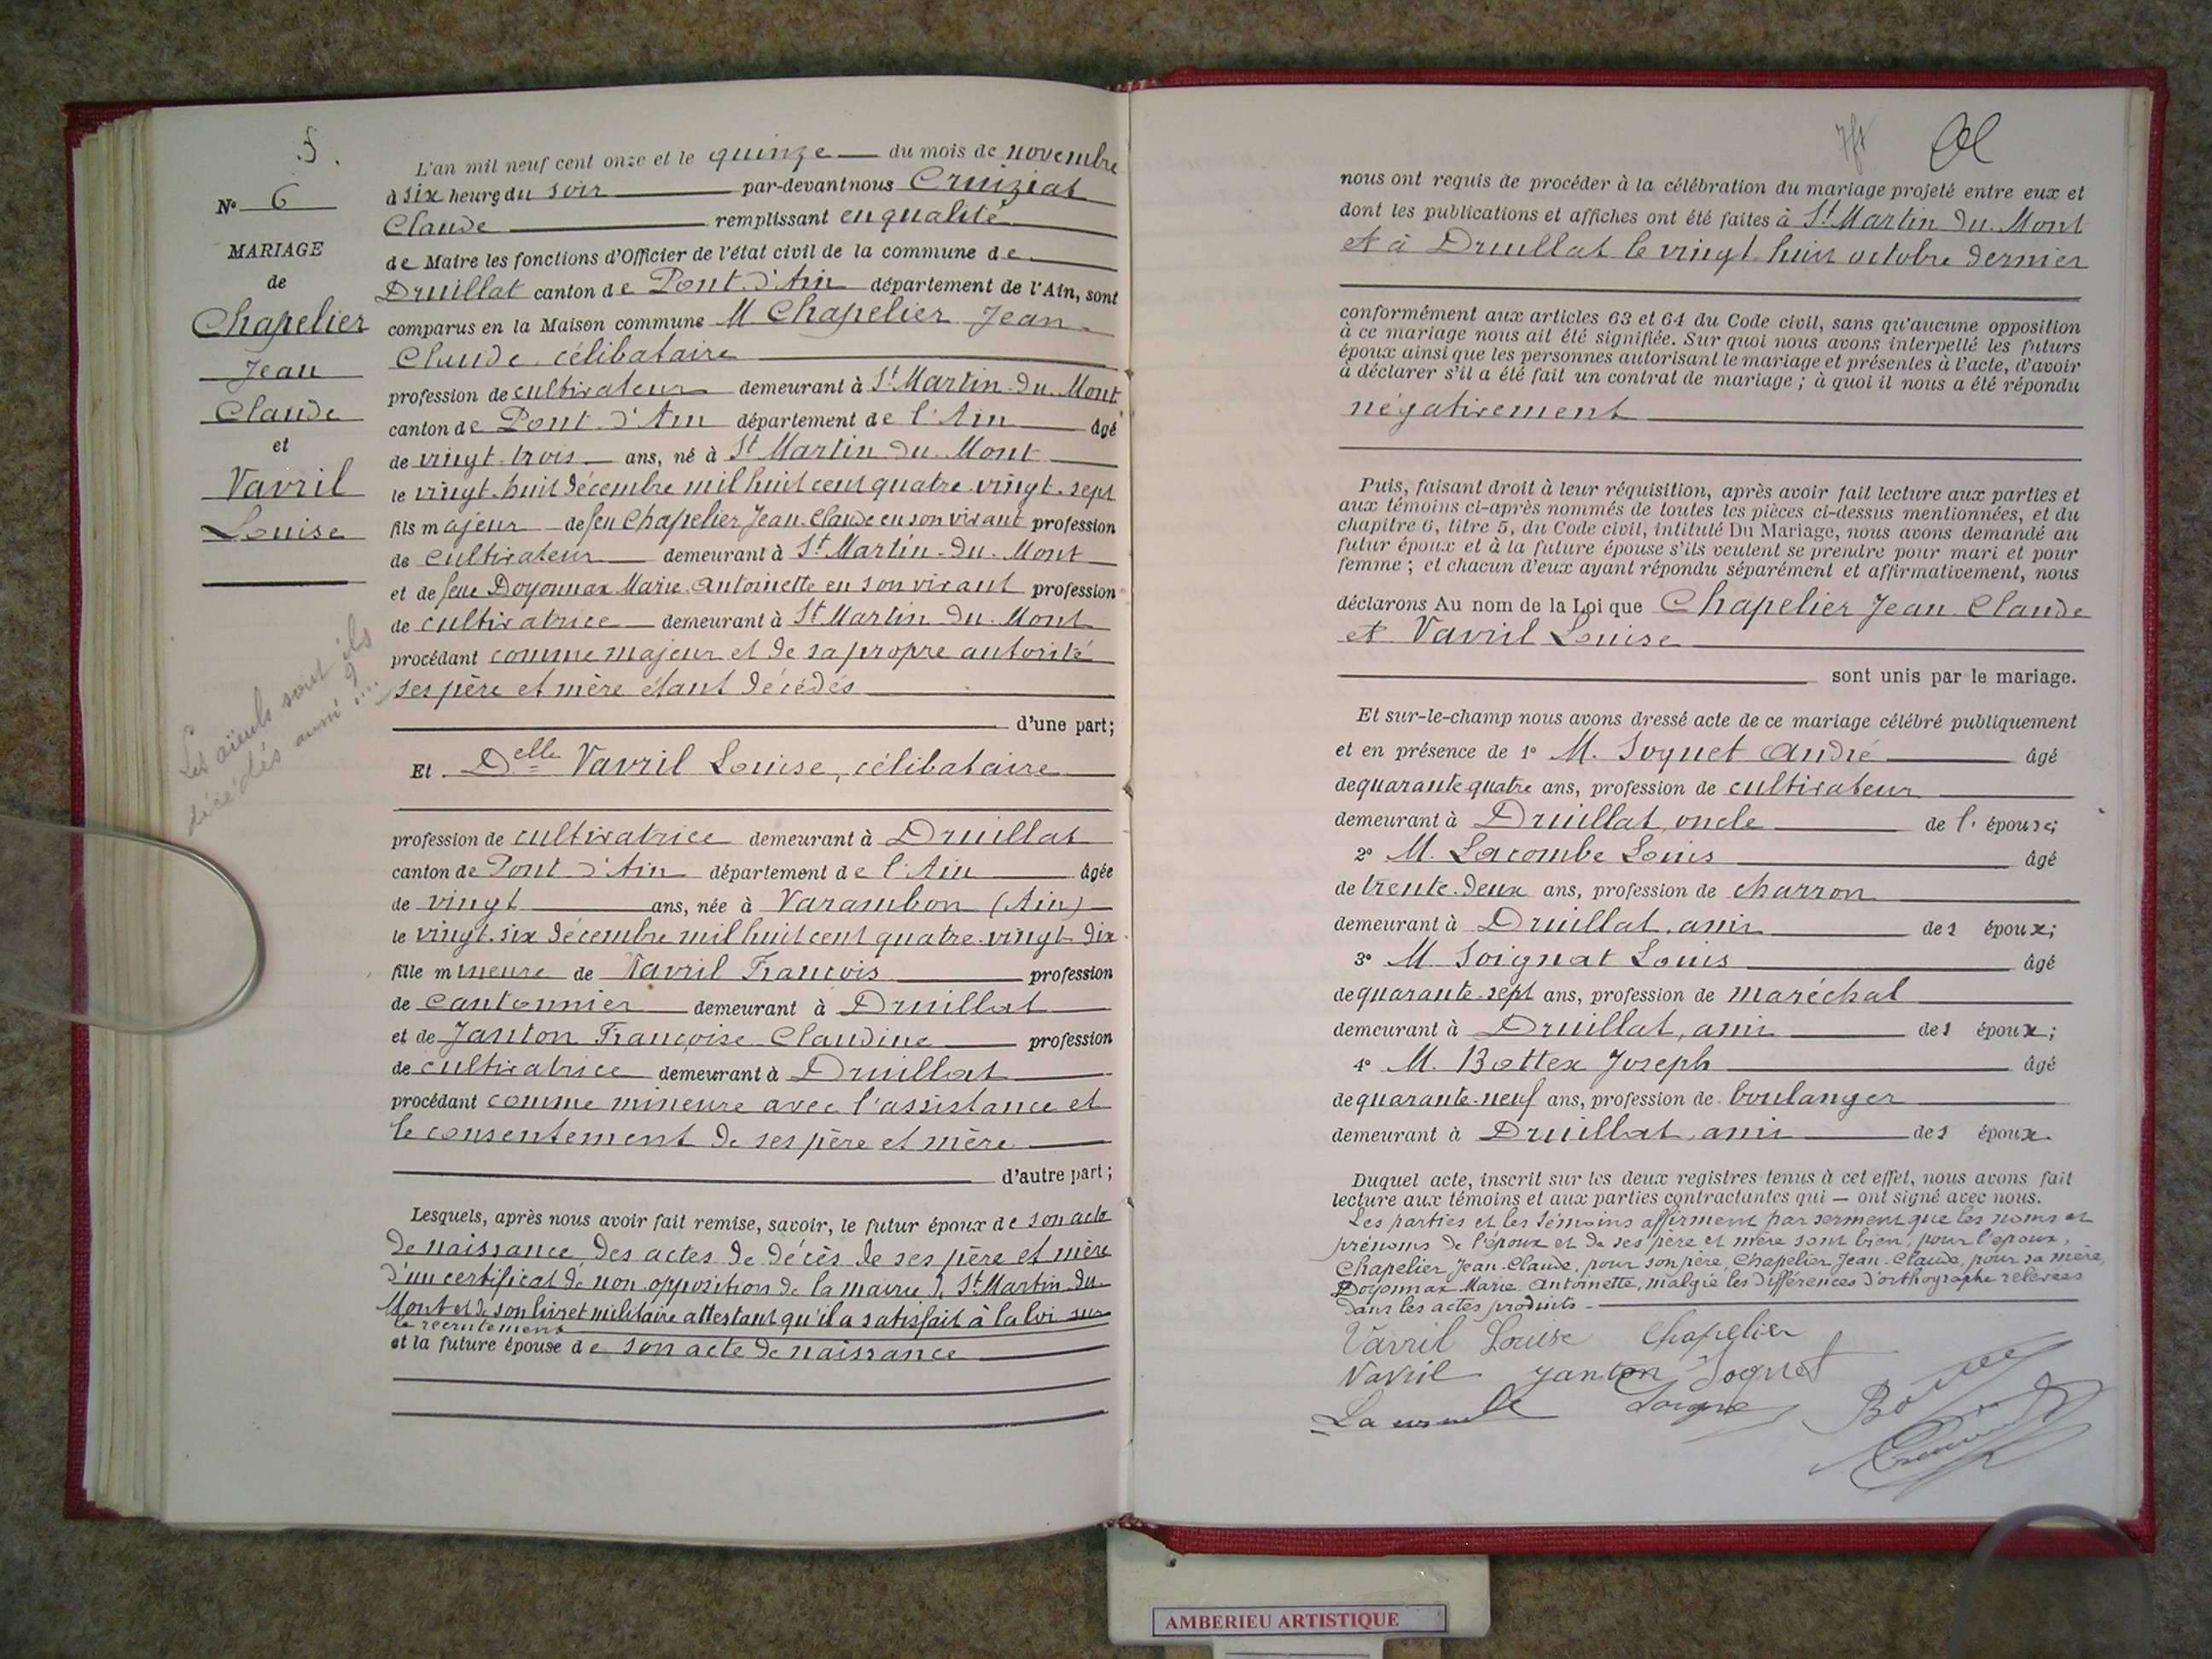 5.
N° 6
MARIAGE
de
Chapelier
Jean
Claude
et
Vavril
Louise
Les aïeuls sont ils
décédés aussi ?
L'an mil neuf cent onze et le quinze du mois de novembre
à six heure du soir par-devant nous Cruiziat
Claude remplissant en qualité
de Maire les fonctions d'Officier de l'état civil de la commune de
Druillat canton de Pont-d'Ain département de l'Ain, sont
comparus en la Maison commune M Chapelier Jean-
Claude, célibataire
profession de cultivateur demeurant à St Martin-du-Mont
canton de Pont-d'Ain département de l'Ain âgé
de vingt-trois ans, né à St Martin-du-Mont
le vingt-huit décembre mil huit cent quatre-vingt-sept
fils majeur de feu Chapelier Jean-Claude en son vivant profession
de cultivateur demeurant à St Martin-du-Mont
et de feue Doyonnax Marie-Antoinette en son vivant profession
de cultivatrice demeurant à St Martin-du-Mont
procédant comme majeur et de sa propre autorité
ses père et mère étant décédés
d'une part;
Et Delle Vavril Louise, célibataire
profession de cultivatrice demeurant à Druillat
canton de Pont-d'Ain département de l'Ain âgée
de vingt ans, née à Varambon (Ain)
le vingt-six décembre mil huit cent quatre-vingt-dix
fille mineure de Vavril François profession
de cantonnier demeurant à Druillat
et de Janton Françoise-Claudine profession
de cultivatrice demeurant à Druillat
procédant comme mineure avec l'assistance et
le consentement de ses père et mère
d'autre part;
Lesquels, après nous avoir fait remise, savoir, le futur époux de son acte
de naissance, des actes de décès de ses père et mère
d'un certificat de non opposition de la mairie de St Martin-du-
Mont et de son livret militaire attestant qu'il a satisfait à la loi sur
le recrutement
et la future épouse de son acte de naissance
nous ont requis de procéder à la célébration du mariage projeté entre eux et
dont les publications et affiches ont été faites à St Martin-du-Mont
et à Druillat le vingt-huit octobre dernier
conformément aux articles 63 et 64 du Code civil, sans qu'aucune opposition
à ce mariage nous ait été signifiée. Sur quoi nous avons interpellé les futurs
époux ainsi que les personnes autorisant le mariage et présentes à l'acte, d'avoir
à déclarer s'il a été fait un contrat de mariage ; à quoi il nous a été répondu
négativement
Puis, faisant droit à leur réquisition, après avoir fait lecture aux parties et
aux témoins ci-après nommés de toutes les pièces ci-dessus mentionnées, et du
chapitre 6, titre 5, du Code civil, intitulé Du Mariage, nous avons demandé au
futur époux et à la future épouse s'ils veulent se prendre pour mari et pour
femme ; et chacun d'eux ayant répondu séparément et affirmativement, nous
déclarons Au nom de la Loi que Chapelier Jean-Claude
et Vavril Louise
sont unis par le mariage.
Et sur-le-champ nous avons dressé acte de ce mariage célébré publiquement
et en présence de 1° M. Soquet André âgé
de quarante-quatre ans, profession de cultivateur
demeurant à Druillat, oncle de l'épouse;
2° M. Lacombe Louis âgé
de trente-deux ans, profession de charron
demeurant à Druillat, ami des époux;
3° M Soignat Louis âgé
de quarante-sept ans, profession de maréchal
demeurant à Druillat, ami des époux;
4° M. Bottex Joseph âgé
de quarante-neuf ans, profession de boulanger
demeurant à Druillat, ami des époux.
Duquel acte, inscrit sur les deux registres tenus à cet effet, nous avons fait
lecture aux témoins et aux parties contractantes qui — ont signé avec nous.
Les parties et les témoins affirment par serment que les noms et
prénoms de l'époux et de ses père et mère sont bien, pour l'époux,
Chapelier Jean-Claude, pour son père, Chapelier Jean-Claude, pour sa mère,
Doyonnax Marie-Antoinette, malgré les différences d'orthographe relevées
dans les actes produits.
Vavril Louise Chapelier
Vavril Janton Soquet
AMBERIEU ARTISTIQUE